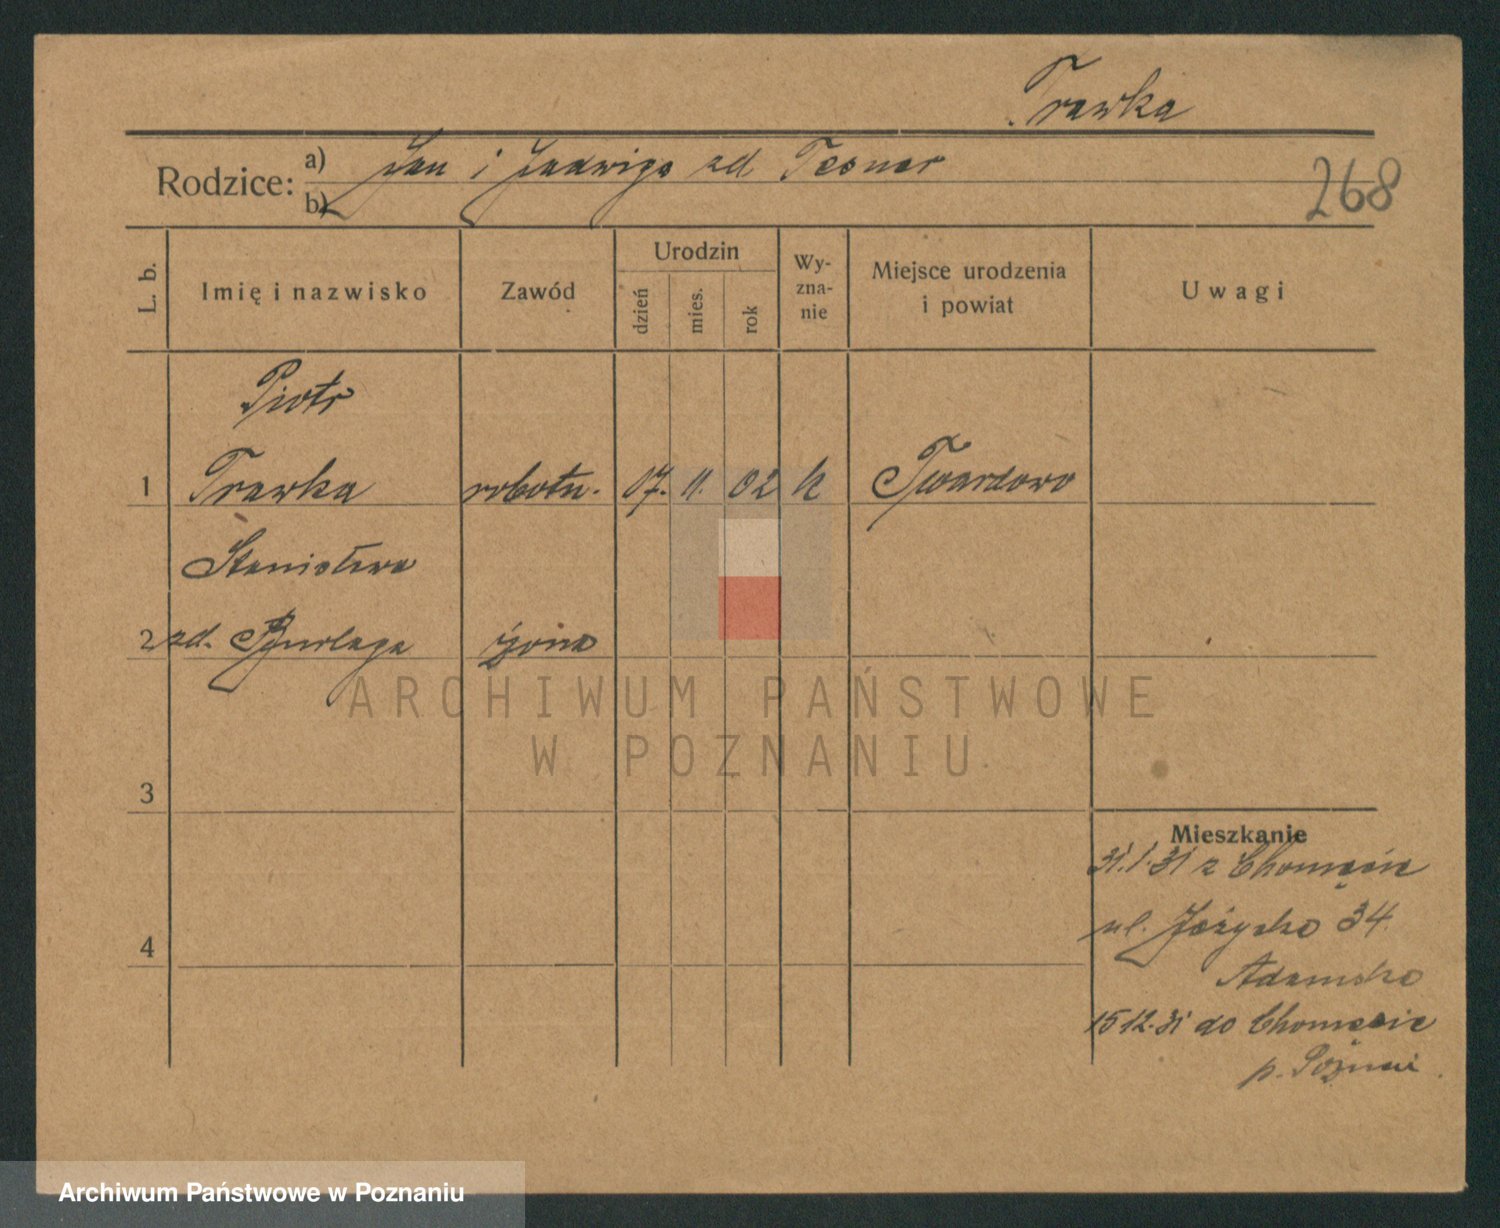 Trawka
Rodzice: a) Jan i Jadwiga zd Tesner
b)
268
L. b. Imię i nazwisko Zawód Urodzin dzień mies. rok Wy-zna-nie Miejsce urodzenia i powiat Uwagi
Piotr
1 Trawka robotn. 07. 11. 02 k Twardowo
Stanisława
2 zd. Burlaga żona
ARCHIWUM PAŃSTWOWE
W POZNANIU
3
Mieszkanie
31.1.31 z Chomęcic
4 ul. Jeżycka 34
Adamska
15 12. 31 do Chomęcic
p. Poznań
Archiwum Państwowe w Poznaniu